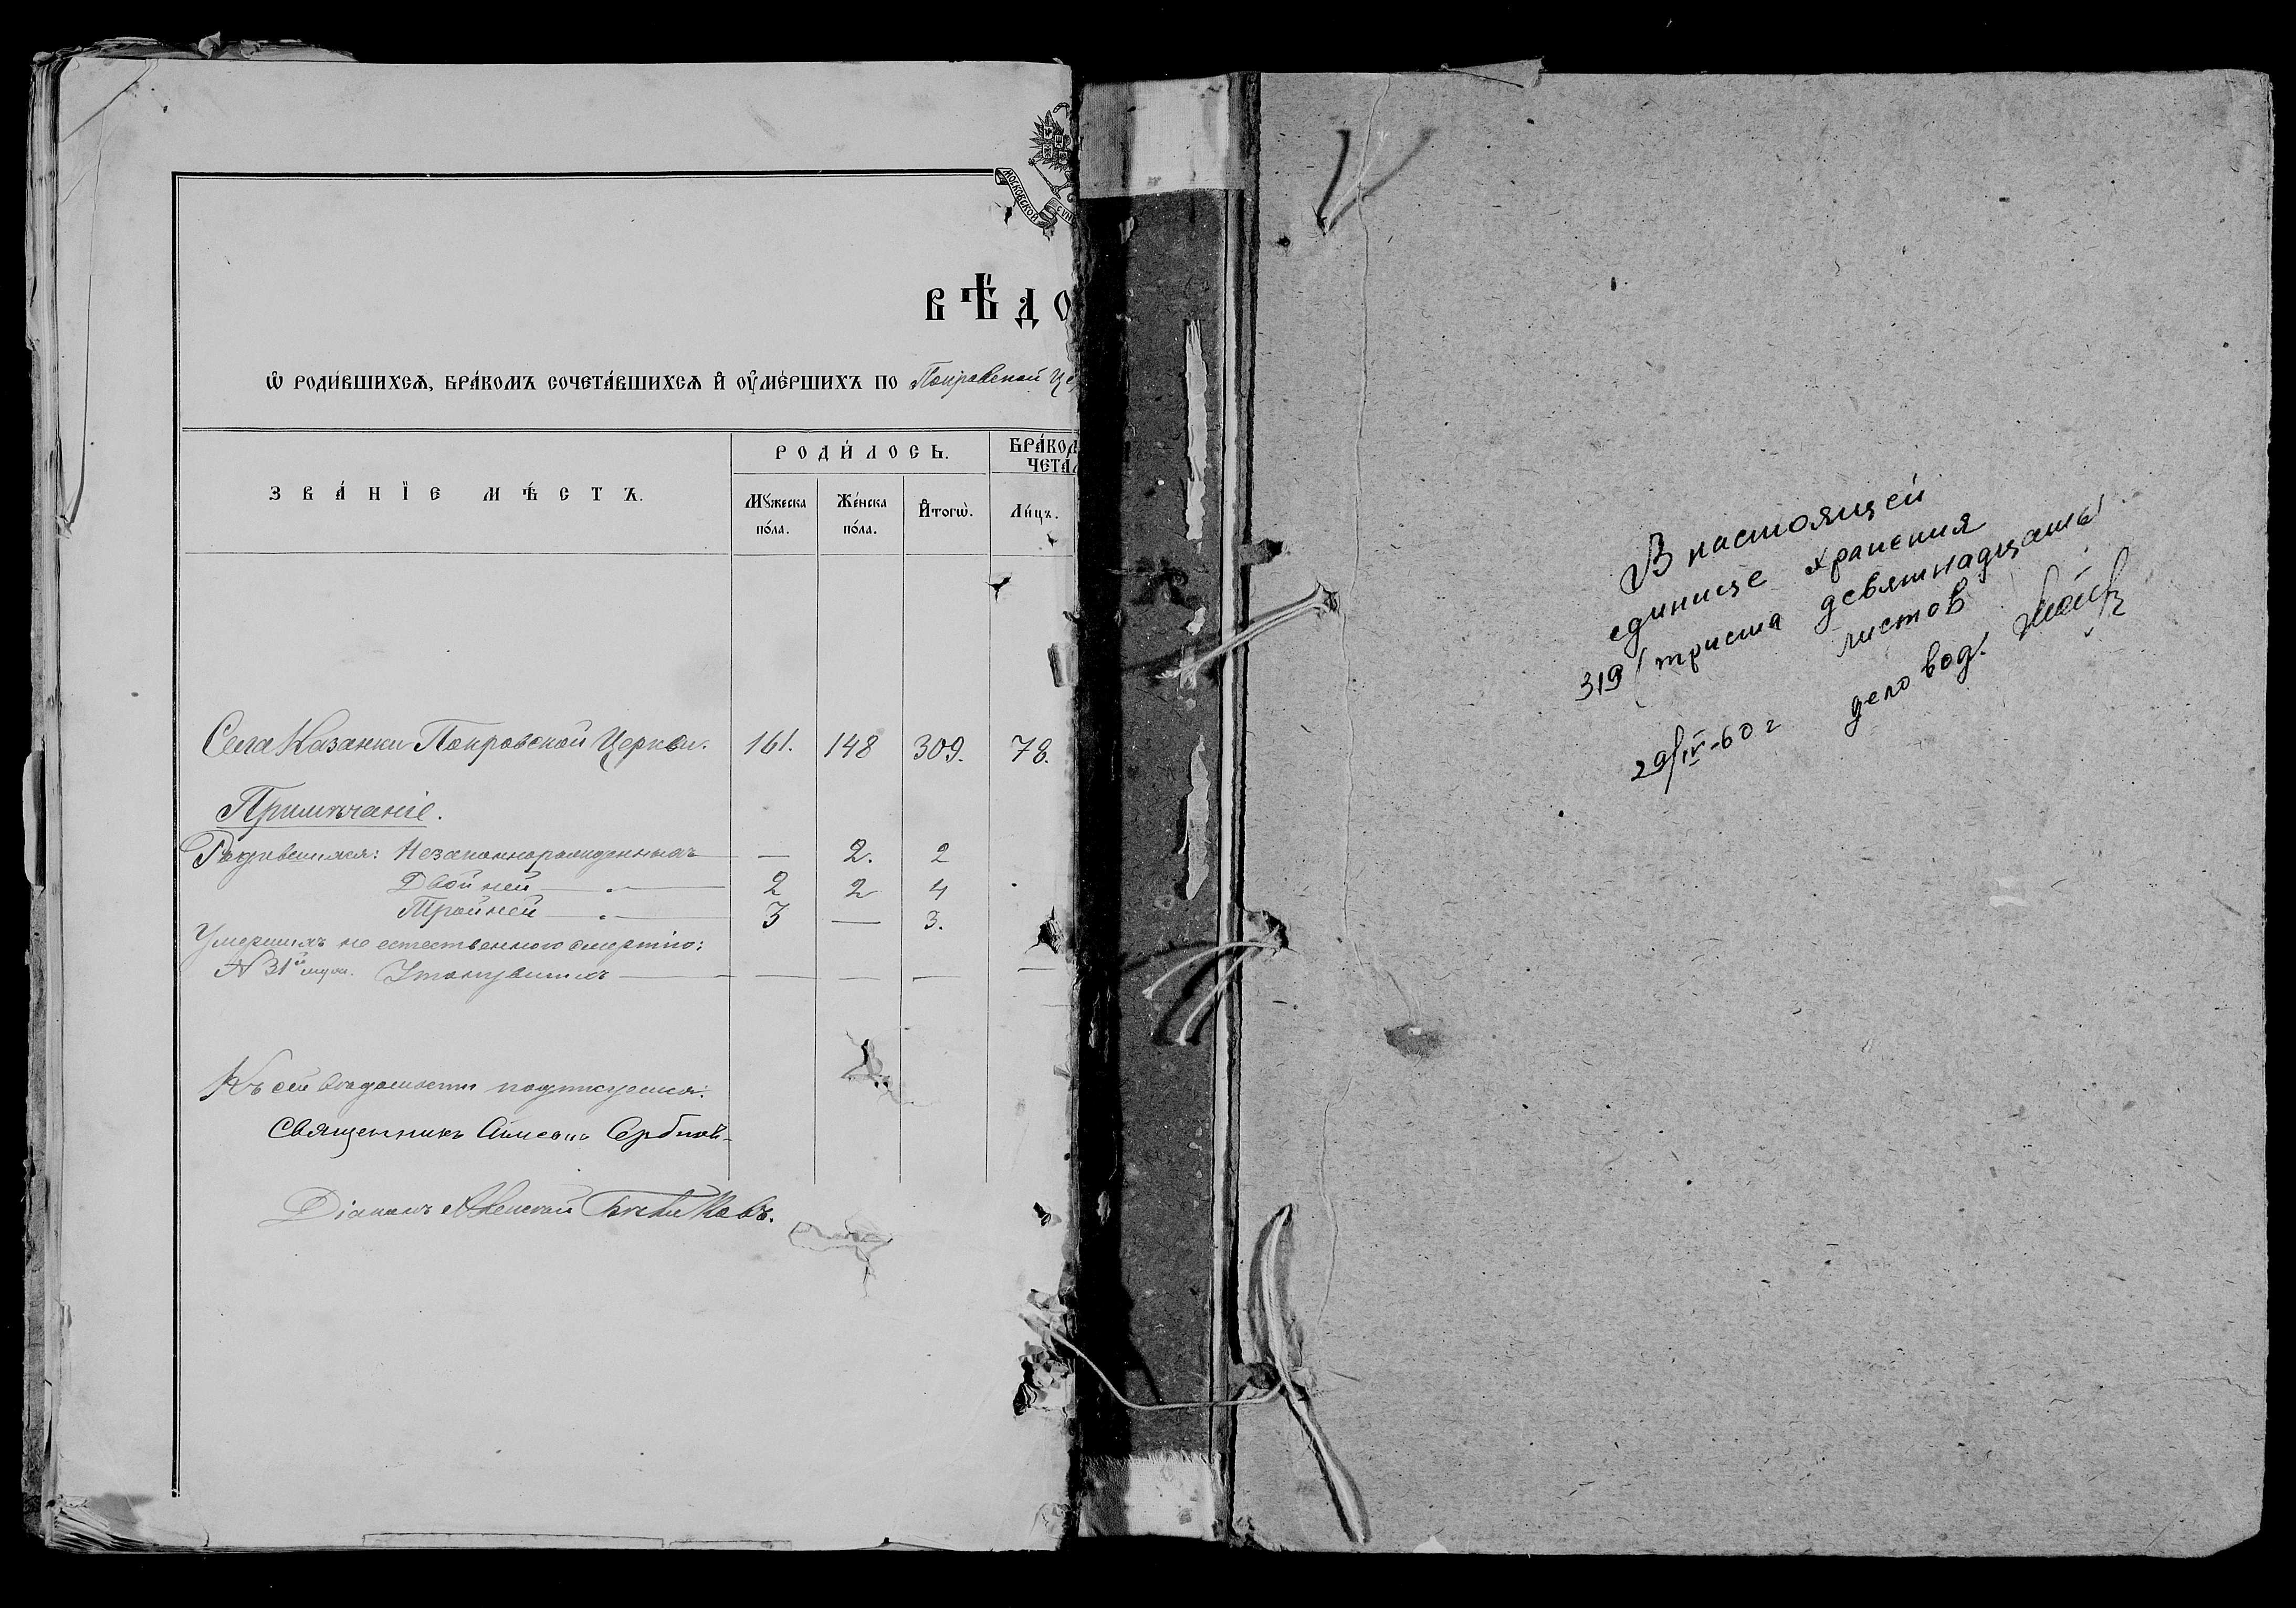 МОСКОВСКОЙ СѴНО
ВѢДО
Ѡ РОДИ́ВШИХСѦ, БРА́КОМЪ СОЧЕТА́ВШИХСѦ И҆ ОУ҆МЕ́РШИХЪ ПО Покровской Це
ЗВА́НЇЕ МѢ́СТЪ.
РОДИ́ЛОСЬ.
БРА́КОМ
ЧЕТА́
Мꙋжеска по́ла.
Же́нска по́ла.
И҆тогѡ̀.
Ли́цъ.
Села Казанки Покровской Церкви. 161. 148 309. 78.
Примѣчаніе.
Родившихся: Незаконнорожденныхъ — 2. 2
Двойней — 2 2 4
Тройней — 3 — 3.
Умершихъ не естественною смертію:
№ 31й муж. Утонувшихъ — — — — —
Къ сей вѣдомости подписуемся:
Священникъ Сербинов
Діаконъ Алексѣй
В настоящей
единице хранения
319 (триста девятнадцать)
листов
29/IV-60 г деловод.